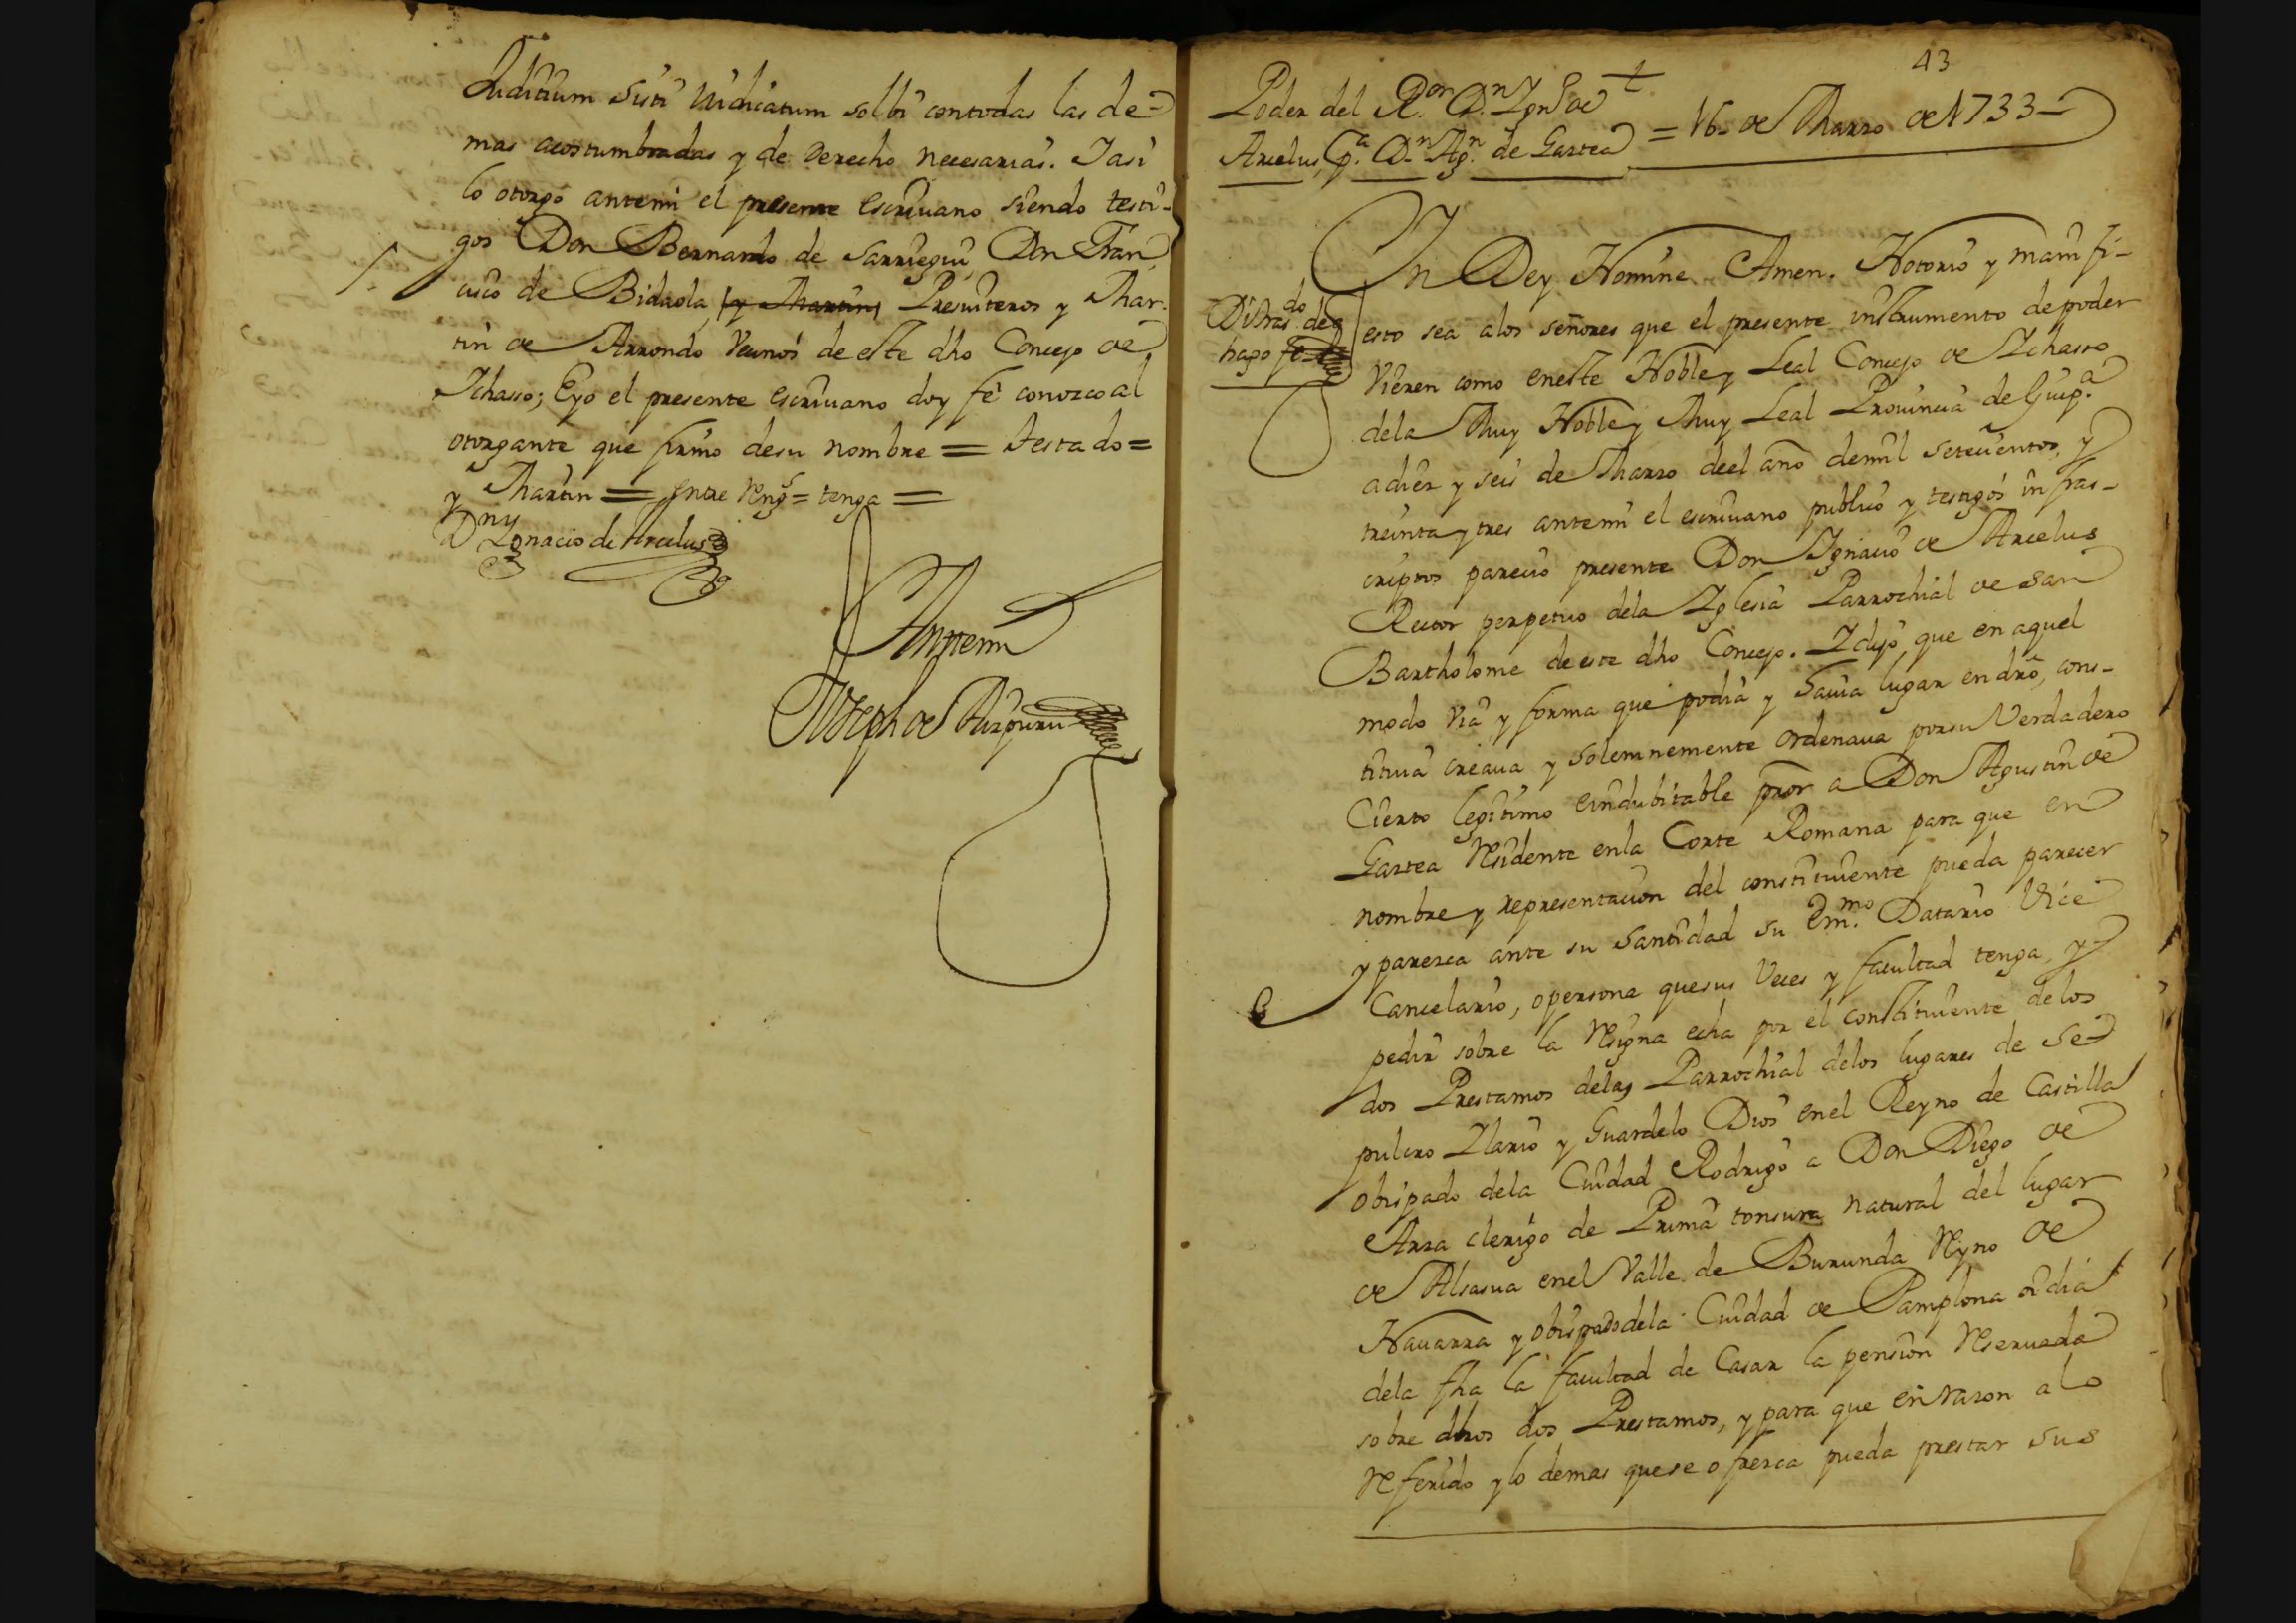 Juditium sisti Iudicatum solbi contodas las de-
mas acostumbradas y de derecho necesarias. Iasi
lo otorgo antemi el presente escriuano siendo testi-
gos Don Bernardo de Sarriegui Don Fran
cisco de Bidaola, y Martin, Presuiteros y Mar-
tin de Arrondo Vecinos de este dho Concejo de
Ichasso; Eyo el presente escriuano doy fé conozco al
otorgante que firmo desu nombre = testado =
y Martin = Entre Rengs = tenga =
Dn Ignacio de Arcelus
Antemi
Joseph de Aizpuru
43
Poder del Ror Dn Ignº de
Arcelus, Pa Dn Agn de Gartea = 16 de Marzo de 1733 -
In Dey Nomine Amen. Notorio y manifi-
Di tras.do de q
hago fe
esto sea alos señores que el presente instrumento depoder
Vieren como eneste Noble y Leal Concejo de Ichasso
dela Muy Noble y Muy Leal Prouincia de Guip.a
adiez y seis de Marzo deel año demil setecientos, y
treinta y tres antemi el escriuano publico y testigos infras-
criptos parecio presente Don Ignacio de Arcelus
Rector perpetuo dela Iglesia Parrochial de San
Bartholome de este dho Concejo. I dijo, que en aquel
modo via y forma que podia y hauia lugar en dro, cons-
tituia creaua y solemnemente ordenaua porsu Verdadero
Cierto legitimo eindubitable pror a Don Agustin de
Gartea Residente enla Corte Romana para que en
nombre y representacion del constituiente pueda parecer
y parezca ante su Santidad su Emmo. Datario Vice
Cancelario, opersona quesus Veces y facultad tenga, y
pedir sobre la Resigna echa por el constituiente delos
dos Prestamos delas Parrochial delos lugares de Se-
pulcro Ilario y Guardelo Dios enel Reyno de Castilla
obispado dela Ciudad Rodrigo a Don Diego de
Arza clerigo de Prima tonsura natural del lugar
de Alsasua enel Valle de Burunda Reyno de
Nauarra y obispado dela Ciudad de Pamplona oi dia
dela fha la facultad de Casar la pension Reseruada
sobre dhos dos Prestamos, y para que en razon alo
Referido ylo demas quese ofrezca pueda prestar sus